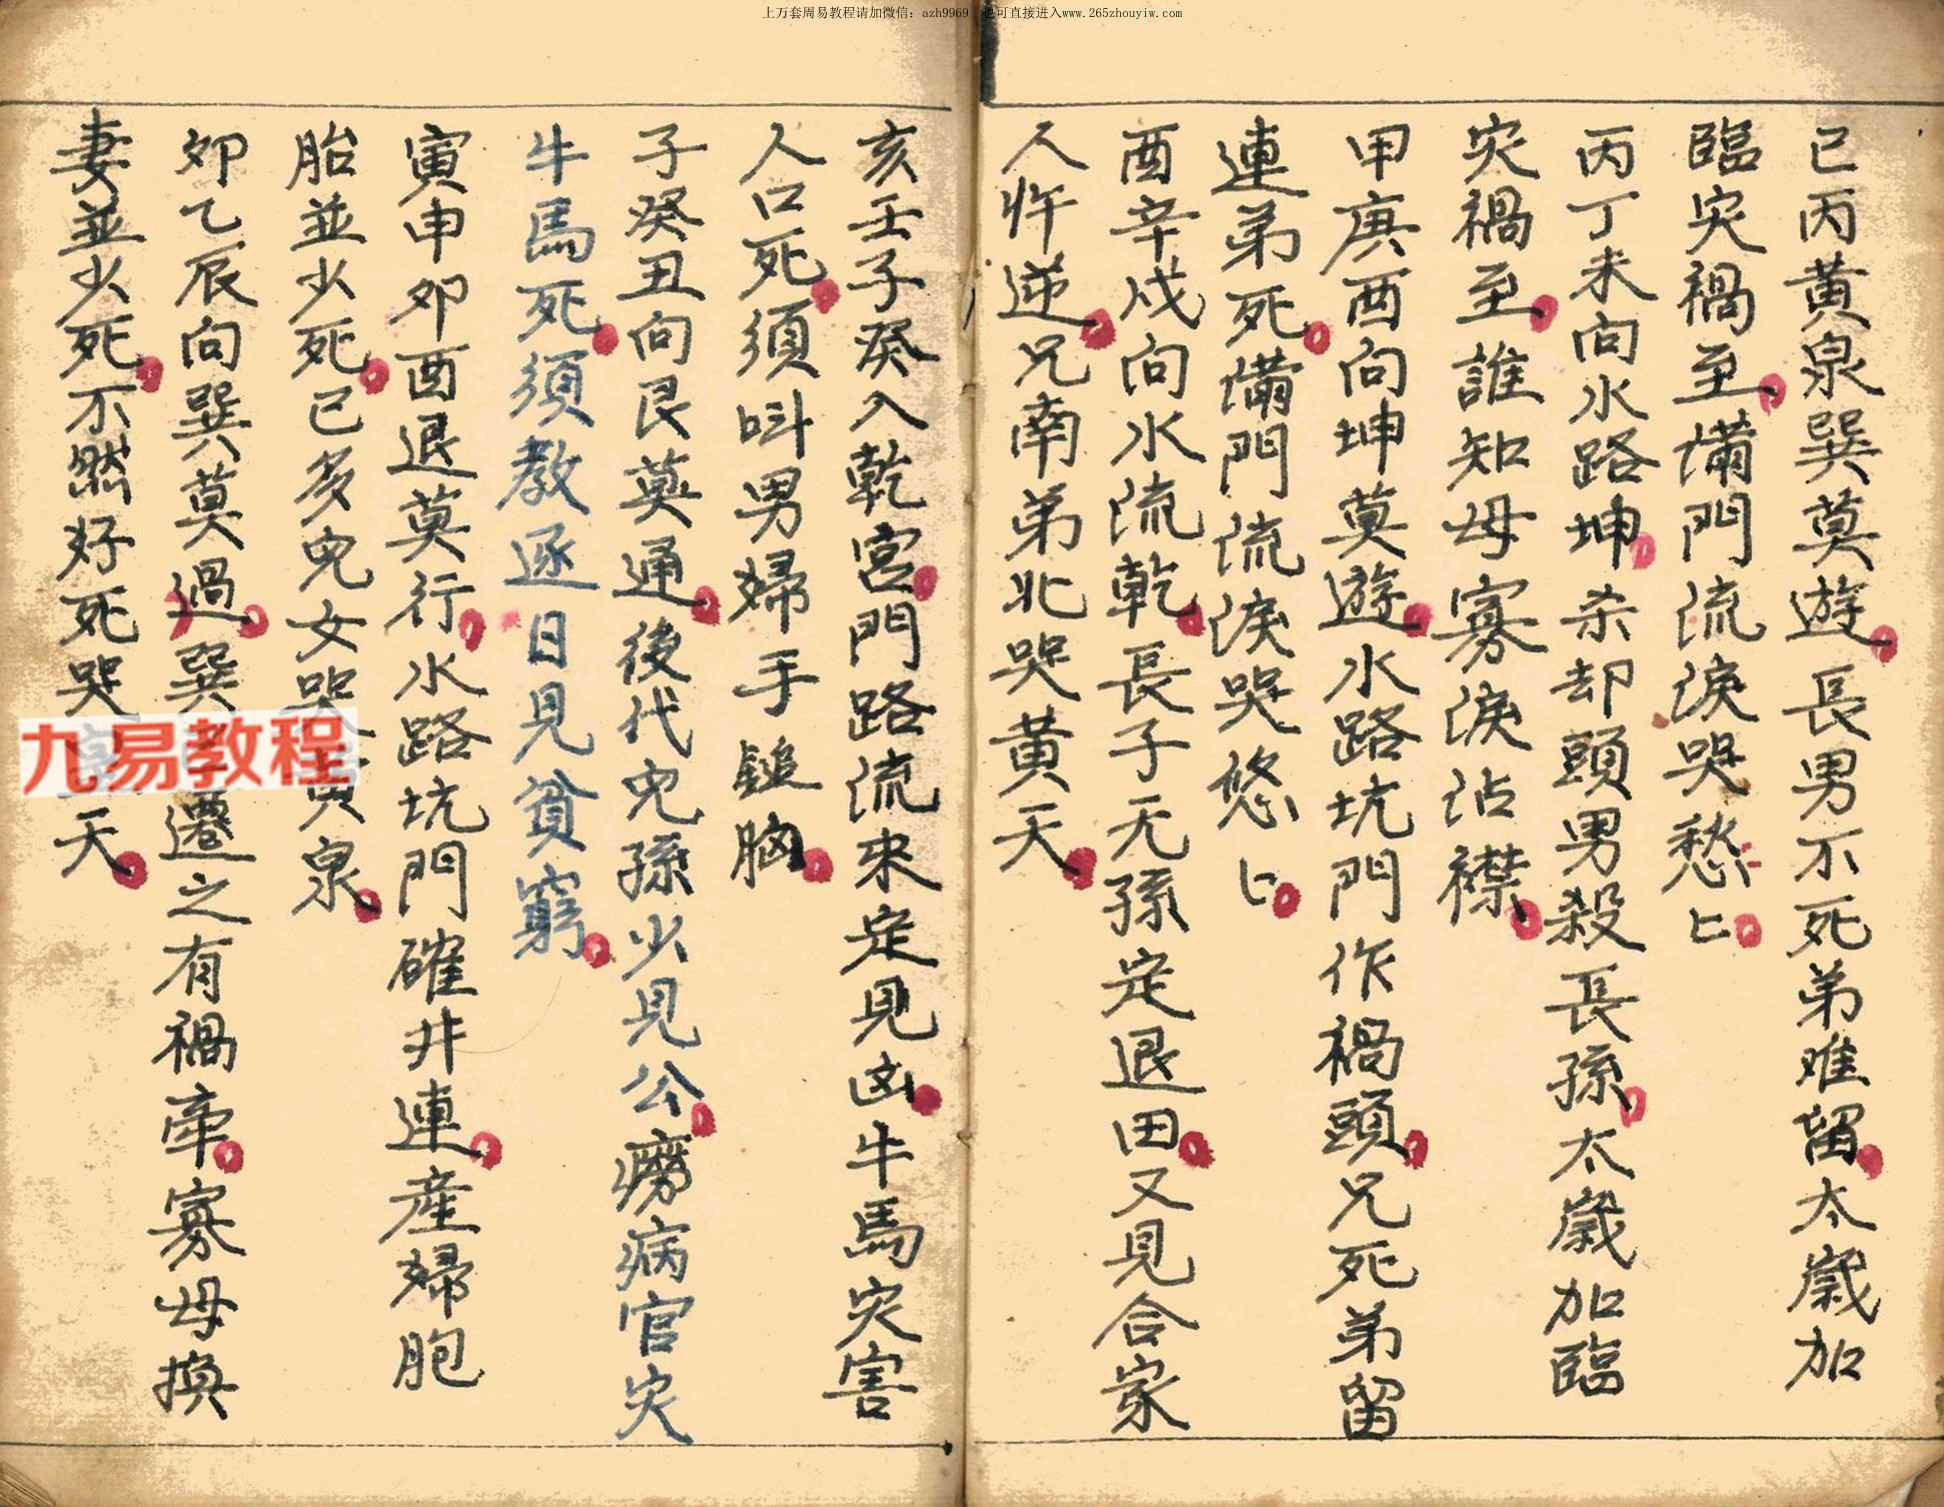 上万套周易教程请加微信：azh9969 也可直接进入www.265zhouyiw.com
巳丙黃泉巽莫遊長男不死弟难留太歲加
臨灾禍至滿門流淚哭愁匕
丙丁未向水路坤杀却頭男殺長孫太歲加臨
灾禍至誰知母寡淚沾襟
甲庚酉向坤莫遊水路坑門作禍頭兄死弟留
連弟死滿門流淚哭悠匕
酉辛戍向水流乾長子无孫定退田又見合家
人忤逆兄南弟北哭黃天
亥壬子癸入乾宮門路流來定見凶牛馬灾害
人口死須呌男婦手鎚胸
子癸丑向艮莫通後代児孫少見公癆病官灾
牛馬死須教逐日見貧窮
寅申卯酉退莫行水路坑門確井連産婦胞
胎並少死已多児女哭黃泉
卯乙辰向巽莫過巽遷之有禍牽寡母換
妻並少死不然好死哭天
九易教程